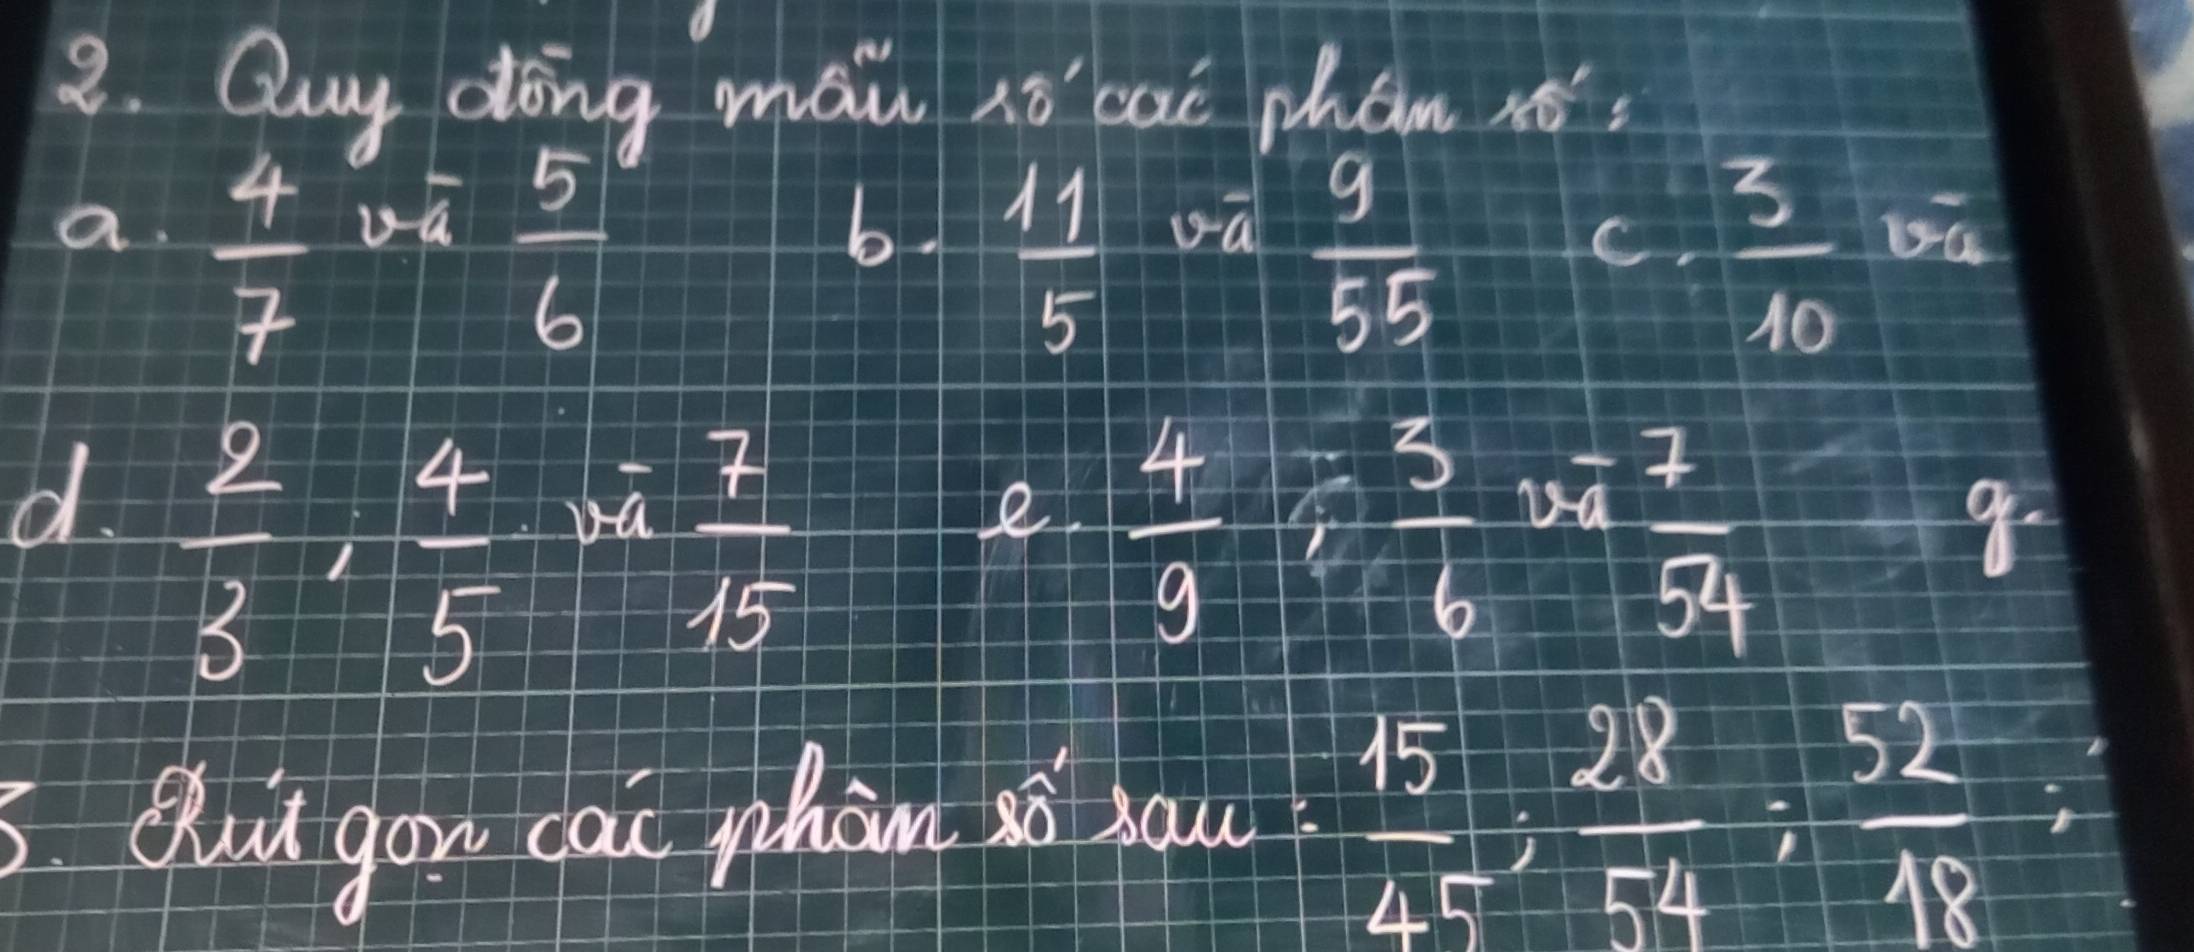 2. Quy đồng mẫu số các phân số:
a. 4/7 và 5/6 b. 11/5 và 9/55 c. 3/10 và
d. 2/3 ; 4/5 và 7/15 e. 4/9 ; 3/6 và 7/54 g.
3. Rút gọn các phân số sau : 15/45 ; 28/54 ; 52/18 ;